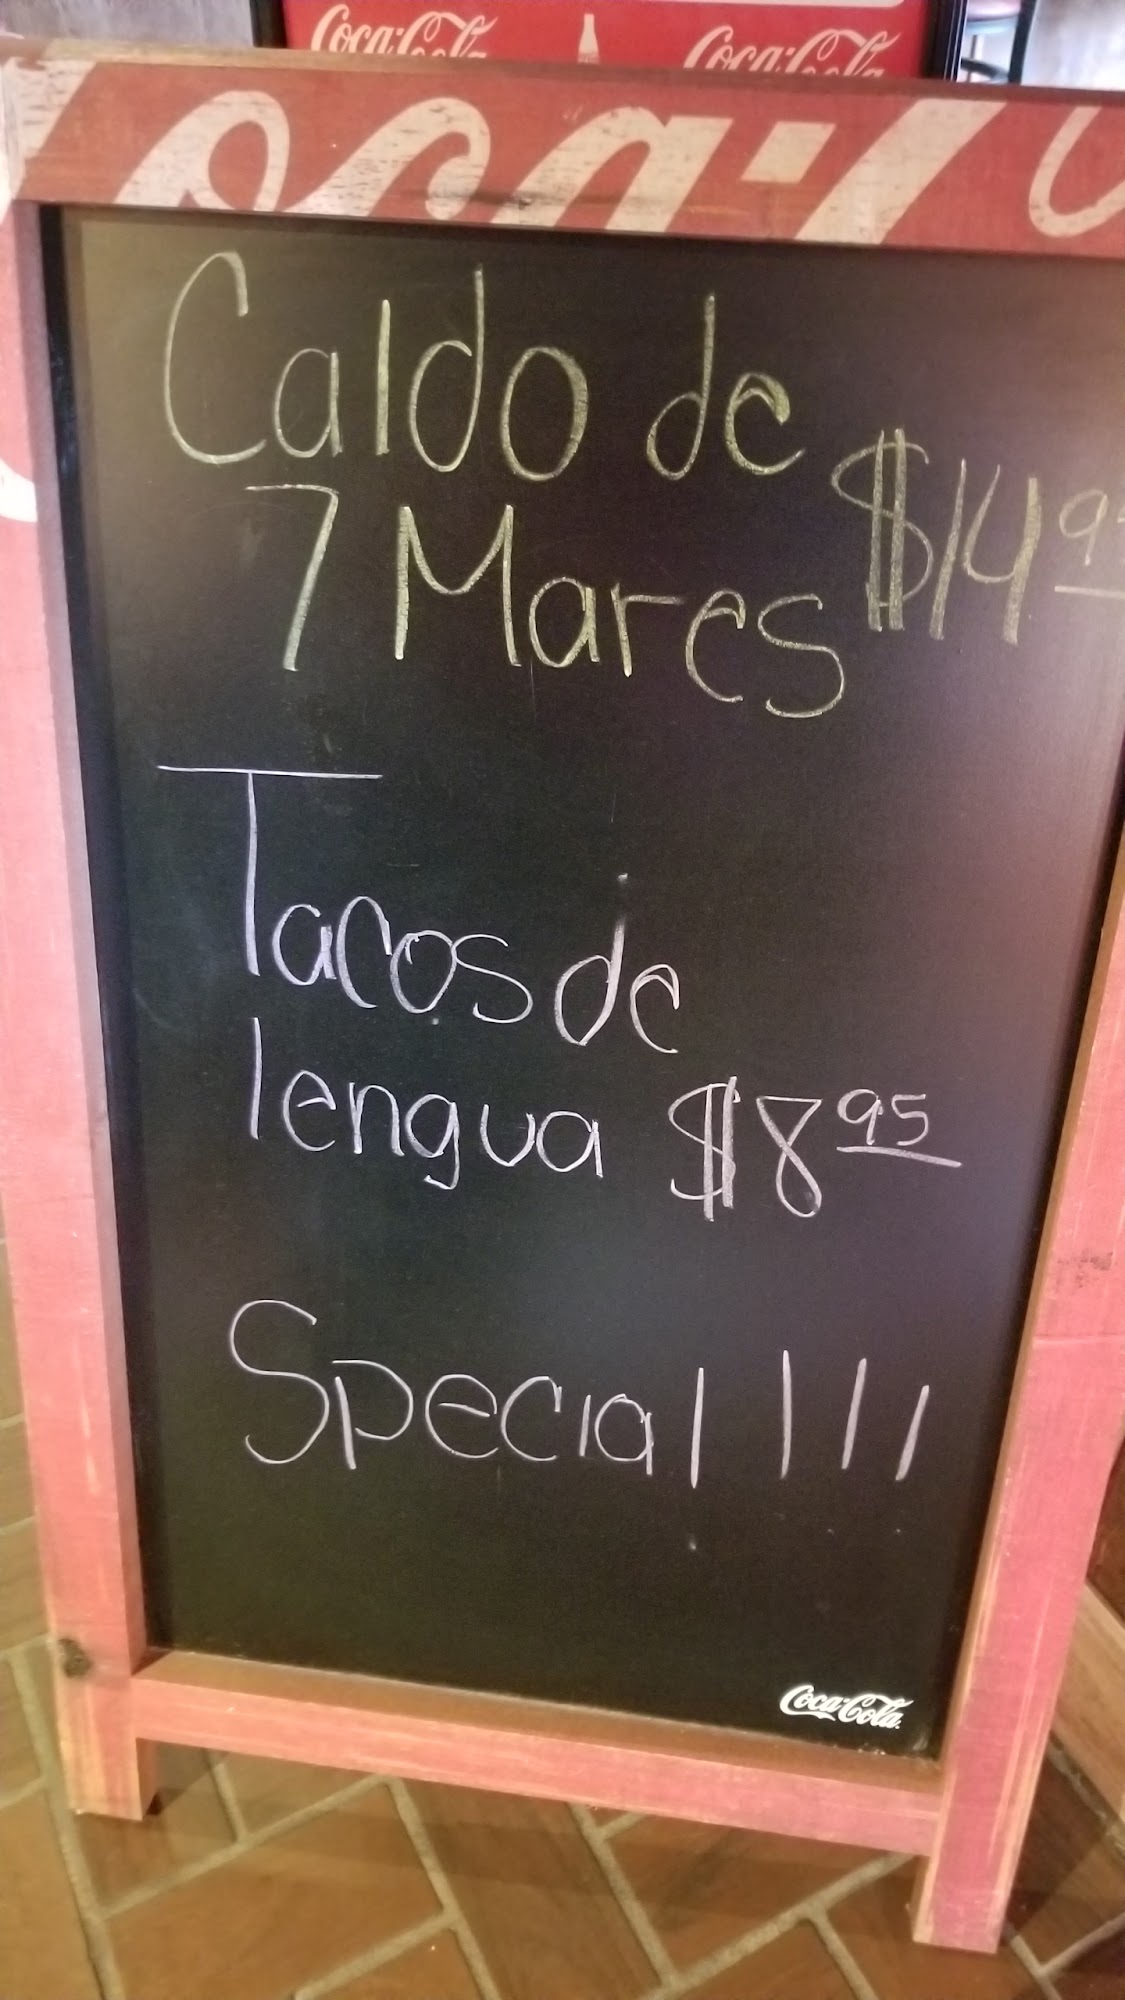 Coca-Cola Coca-Cola
Coca-C
Caldo de
7 Mares $14 95
Tacos de
lengua $8 95
Special !!!
Coca-Cola